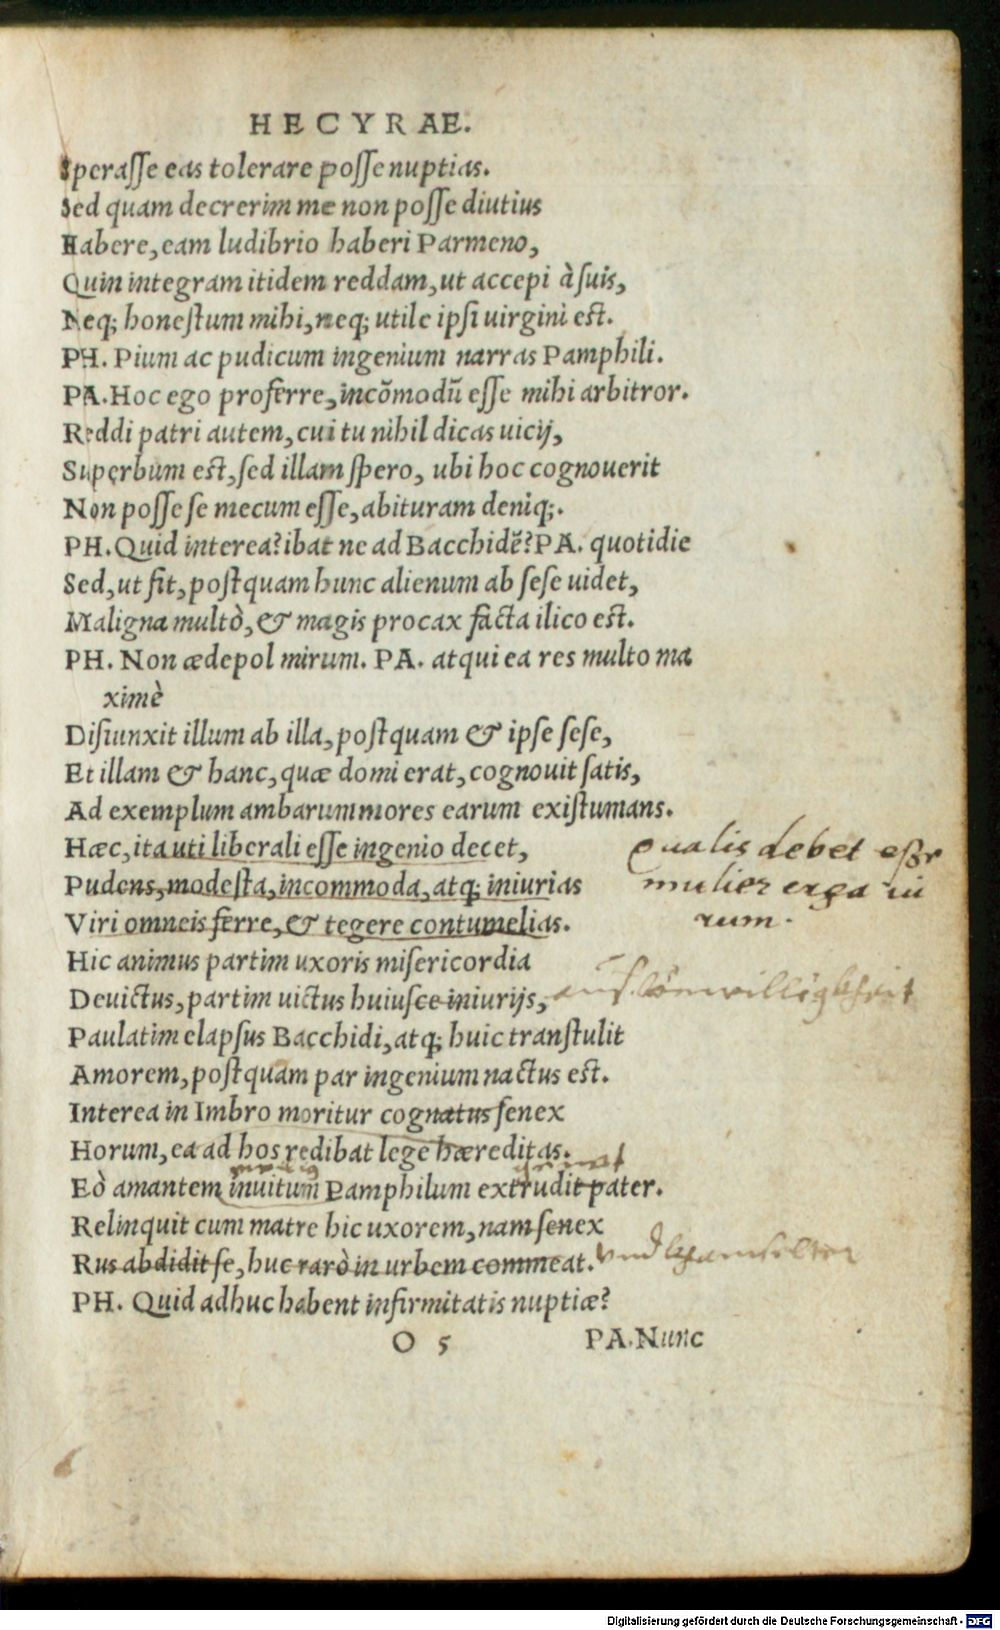 HECYRAE.
Sperasse eas tolerare posse nuptias.
Sed quam decrerim me non posse diutius
Habere, eam ludibrio haberi Parmeno,
Quin integram itidem reddam, ut accepi à suis,
Neq; honestum mihi, neq; utile ipsi uirgini est.
PH. Pium ac pudicum ingenium narras Pamphili.
PA. Hoc ego proferre, incõmodũ esse mihi arbitror.
Reddi patri autem, cui tu nihil dicas uicij,
Superbum est, sed illam spero, ubi hoc cognouerit
Non posse se mecum esse, abituram deniq;.
PH. Quid interea? ibat ne ad Bacchidẽ? PA. quotidie
Sed, ut fit, postquam hunc alienum ab sese uidet,
Maligna multò, & magis procax facta ilico est.
PH. Non ædepol mirum. PA. atqui ea res multo ma
ximè
Disiunxit illum ab illa, postquam & ipse sese,
Et illam & hanc, quæ domi erat, cognouit satis,
Ad exemplum ambarum mores earum existumans.
Hæc, ita uti liberali esse ingenio decet,
Pudens, modesta, incommoda, atq; iniurias
Viri omneis ferre, & tegere contumelias.
qualis debet esse
mulier erga ui
rum.
Hic animus partim uxoris misericordia
Deuictus, partim uictus huiusce iniurijs,
Paulatim elapsus Bacchidi, atq; huic transtulit
Amorem, postquam par ingenium nactus est.
Interea in Imbro moritur cognatus senex
Horum, ea ad hos redibat lege hæreditas.
Eò amantem inuitum Pamphilum extrudit pater.
Relinquit cum matre hic uxorem, nam senex
Rus abdidit se, huc rarò in urbem commeat.
PH. Quid adhuc habent infirmitatis nuptiæ?
O 5 PA. Nunc
Digitalisierung gefördert durch die Deutsche Forschungsgemeinschaft - DFG